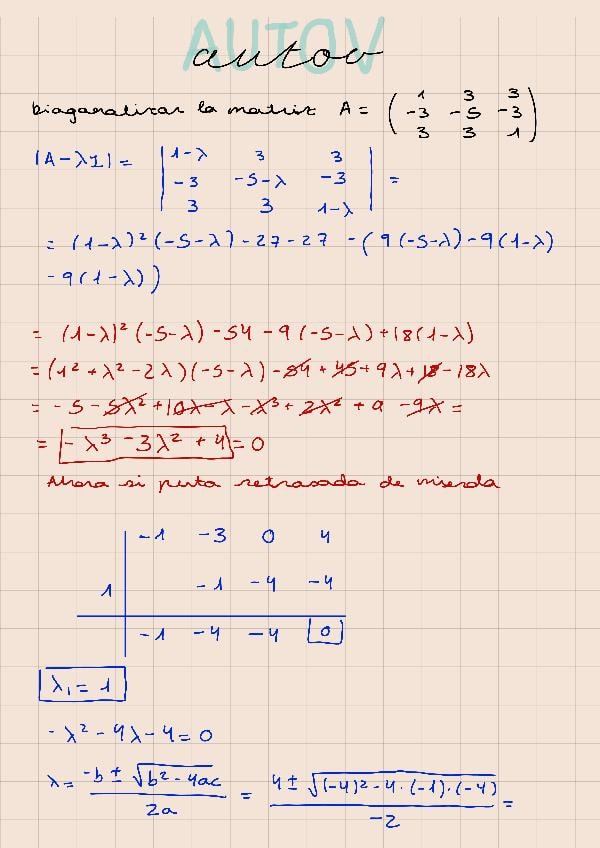 AUTOV
autov
Diagonalizar la matriz A = ( 1 3 3
-3 -5 -3
3 3 1 )
|A-λI| = | 1-λ 3 3
-3 -5-λ -3
3 3 1-λ | =
= (1-λ)² (-5-λ) - 27 - 27 - (9(-5-λ) - 9(1-λ)
- 9(1-λ))
= (1-λ)² (-5-λ) - 54 - 9(-5-λ) + 18(1-λ)
= (1² + λ² - 2λ)(-5-λ) - 54 + 45 + 9λ + 18 - 18λ
= -5 - 5λ² + 10λ - λ - λ³ + 2λ² + 9 - 9λ =
= -λ³ - 3λ² + 4 = 0
Ahora si puta retrasada de mierda
-1 -3 0 4
1 -1 -4 -4
-1 -4 -4 0
λ₁ = 1
-λ² - 4λ - 4 = 0
λ = -b ± √b² - 4ac / 2a = 4 ± √(-4)² - 4·(-1)·(-4) / -2 =